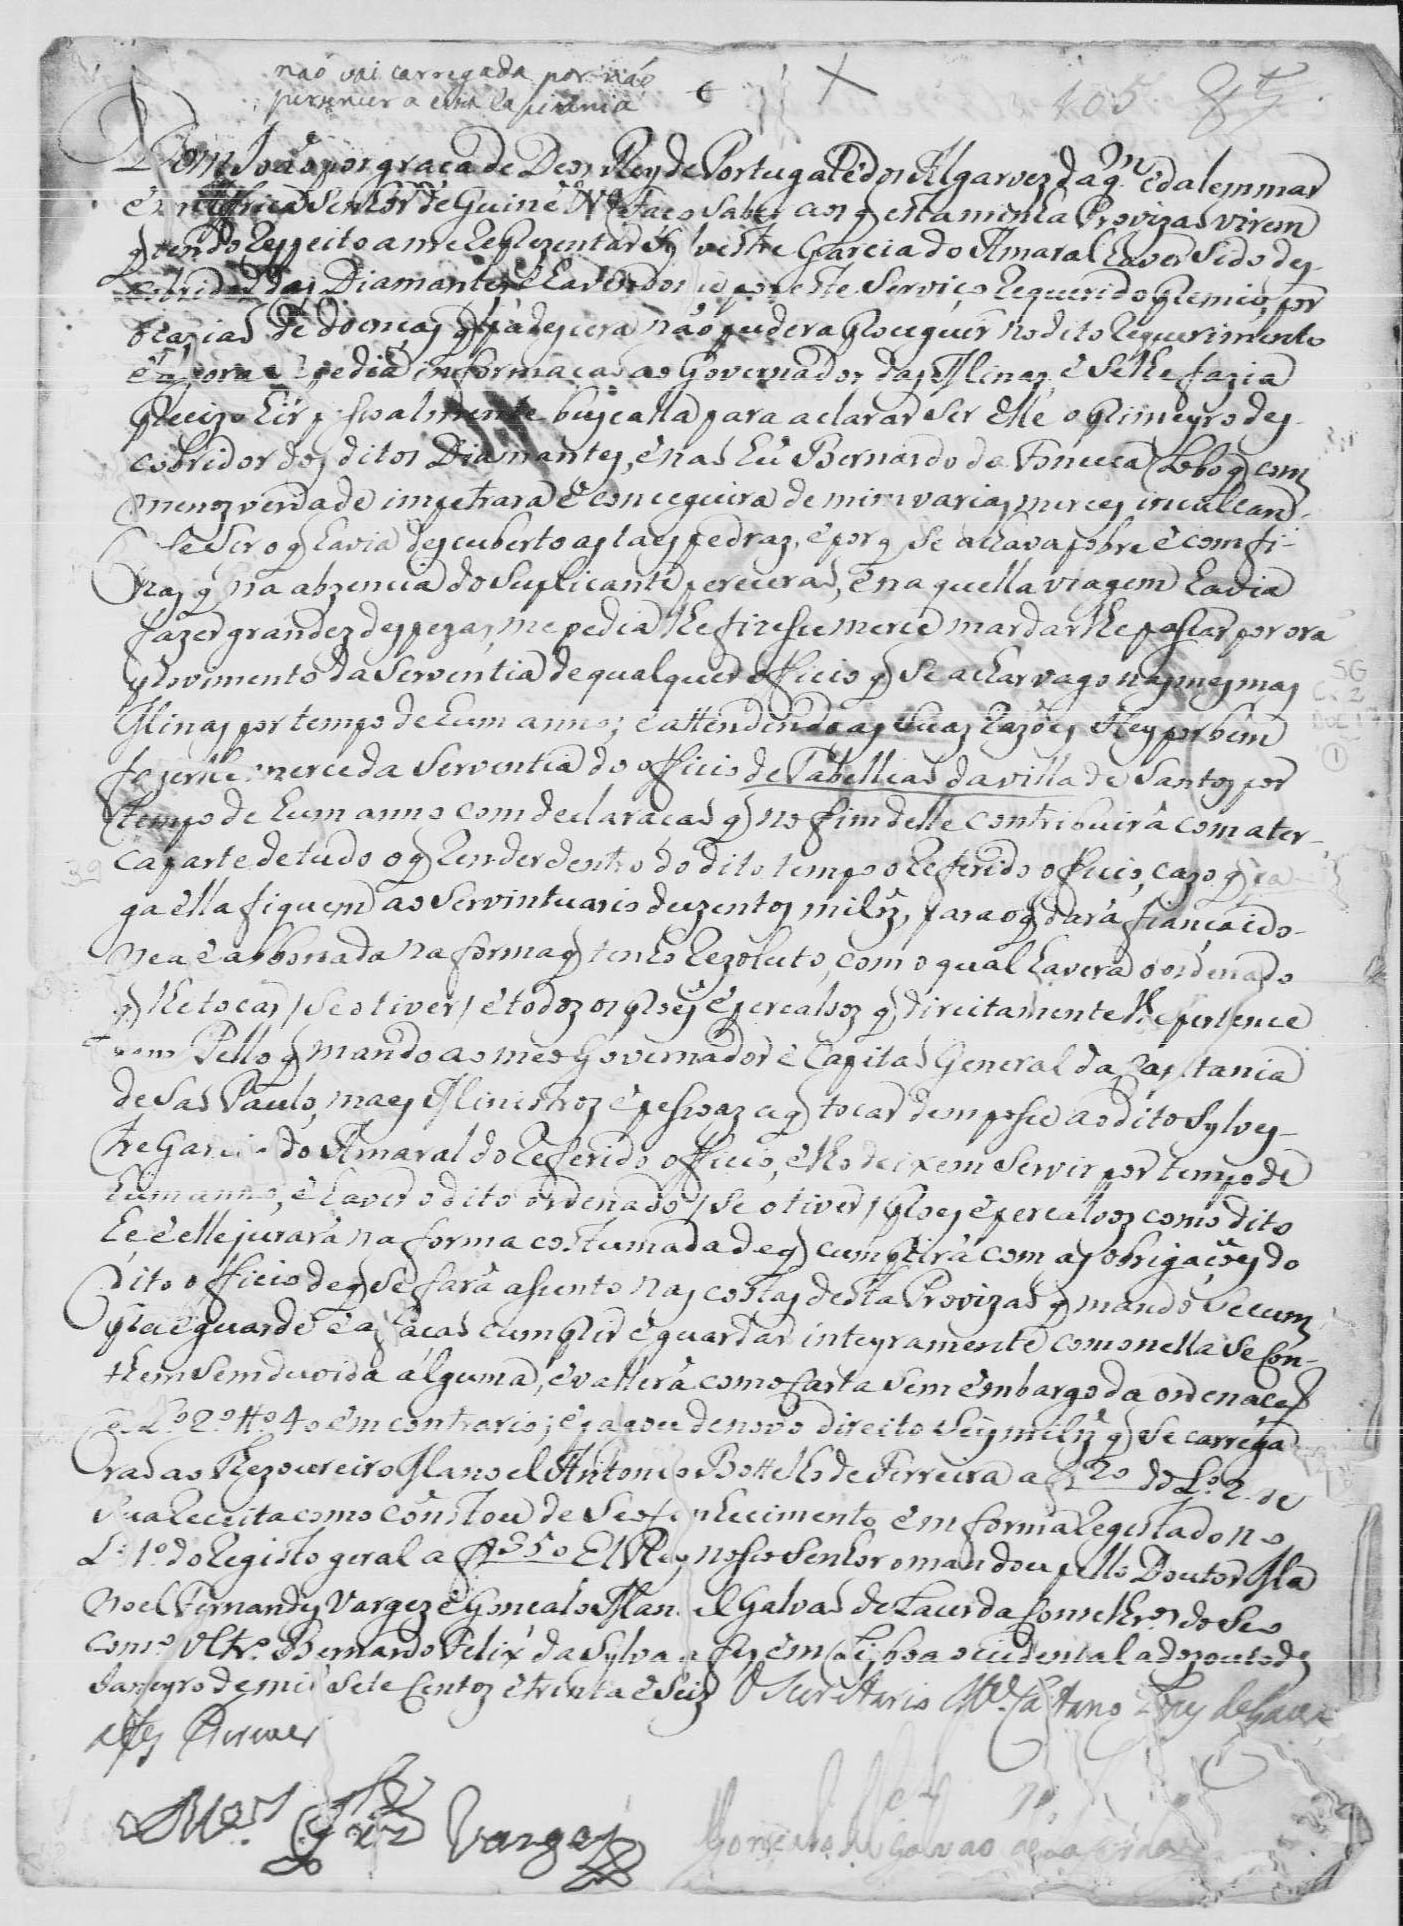 não vai carregada por não
pertencer a esta
405
Dom João por graça de Deos Rey de Portugal e dos Algarvez daqm. e dalem mar
em Africa Senhor de Guiné &a Faço Saber aos q esta minha Provizaõ virem
q tendo respeito a me reprezentar Sylvestre Garcia do Amaral haver sido des-
cobridor dos Diamantes, e havendo por este Serviço requerido premio, por
cauzias de doenças q padescera não pudera proseguir no dito requerimento
e agora pedia informaçaõ ao Governador das Minaz, e Se lhe fazia
precizo hir pessoalmente buscalla para aclarar Ser elle o primeyro des-
cobridor dos ditos Diamantes, e naõ hũ Bernardo da Fonceca Lobo q com
menoz verdade impetrara e conceguira de mim varias merces inculcan-
Se Ser o q havia descuberto as taes pedraz, e por q Se achava pobre e com fi-
lhas q na abzencia do Suplicante pereceraõ, e naquella viagem havia
fazer grandez despezas, me pedia lhe fizesse merce mandarlhe passar por ora
provimento da Serventia de qualquer officio q Se achar vago nas mesmas
Minas por tempo de hum anno; e attendendo as Suas razões Hey por bem
fazerlhe merce da Serventia do officio de Tabelliaõ da villa de Santos por
tempo de hum anno com declaraçaõ q no fim delle contribuirá com a ter-
ça parte de tudo o q render dentro do dito tempo o referido officio, cazo q pa
ga ella fiquem ao Serventuario duzentos mil rs, para o q dará fiança ido-
nea e abbonada na forma q tenho rezoluto, com o qual haverá o ordenado
q lhe tocar / Se o tiver / e todoz oz proes e percalsoz q direitamente lhe pertence
rem Pello q mando ao meo Governador e Capitaõ General da Captania
de Saõ Paulo, maes Ministroz e pessoaz a q tocar dem posse ao dito Sylves-
tre Garcia do Amaral do referido officio, e lho deixem Servir por tempo de
hum anno, e haver o dito ordenado / Se o tiver / proes e percalsoz como dito
he e elle jurará na forma costumada de q cumprirá com as obrigações do
dito officio de q Se fará assento nas costas desta Provizaõ q mando Se cum
pra e guarde e a façaõ cumprir e guardar inteyramente como nella Se con-
them Sem duvida alguma, e vallerá como Carta Sem embargo da ordenaçaõ
do Lo. 2o. tto. 40 em contrario; e pagou de novo direito Seis mil rs q Se carrega
raõ ao Thezoureiro Manoel Antonio Bottelho de Ferreira a f 20 do Lo. 2 de
Sua receita como constou de Seo conhecimento em forma registado no
Lo. 1o. do registo geral a f 350 El Rey nosso Senhor o mandou pello Doutor Ma
noel Fernandes Vargez e Gonçalo Manoel Galvaõ de Lacerda Conselhros. do Seo
conso. Ultro. Bernardo Felix da Sylva a fes em Lisboa occidental a dezouto de
Janeyro de mil Sete Centoz e trinta e Seiz O Secretario Mel. Caetano Lopes de Lavre
a fes escrever
Mel. Frz Vargez
Gonçalo Mel Galvaõ de Lacerda
SG
C. 2
DOC 1
1
39